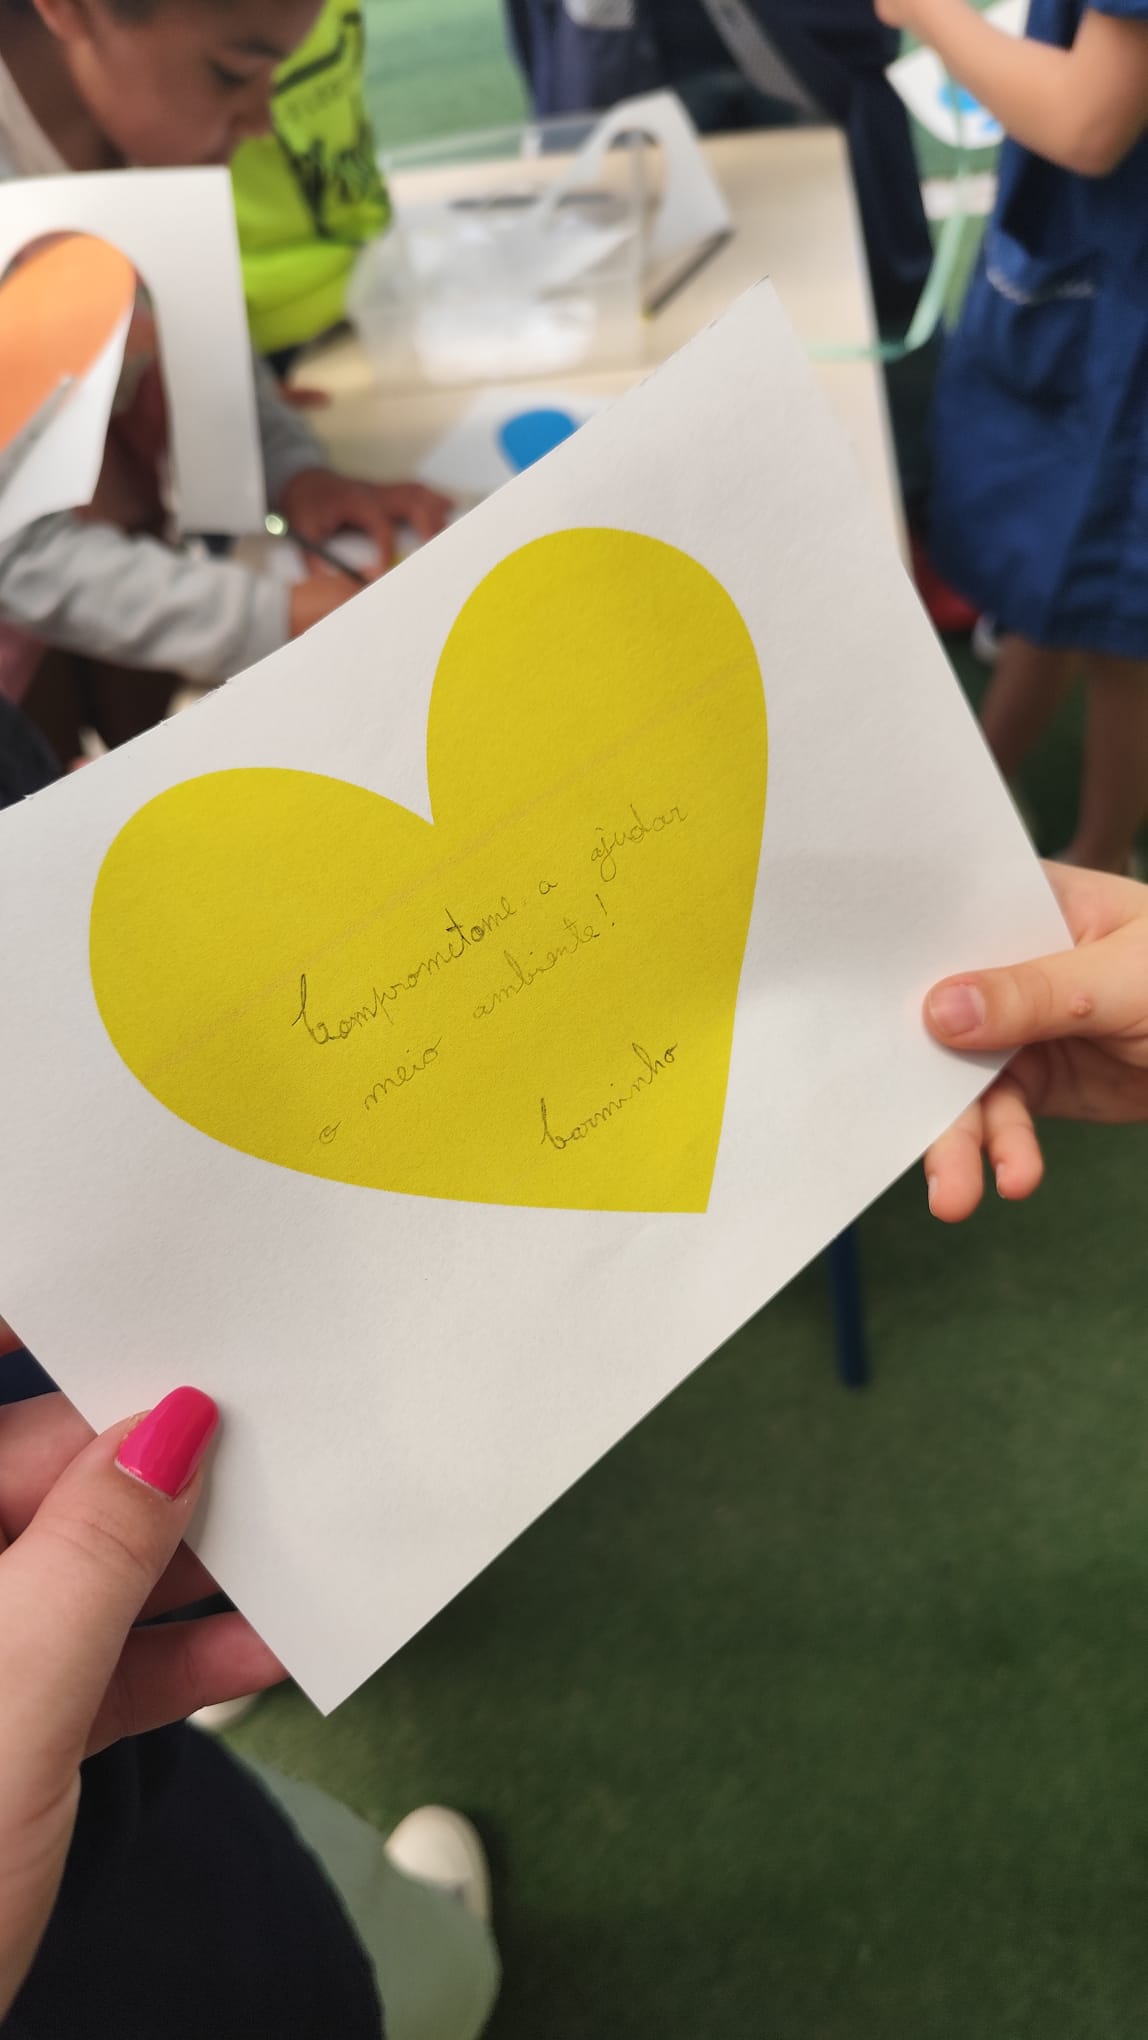 Comprometome a ajudar
o meio ambiente!
Carminho